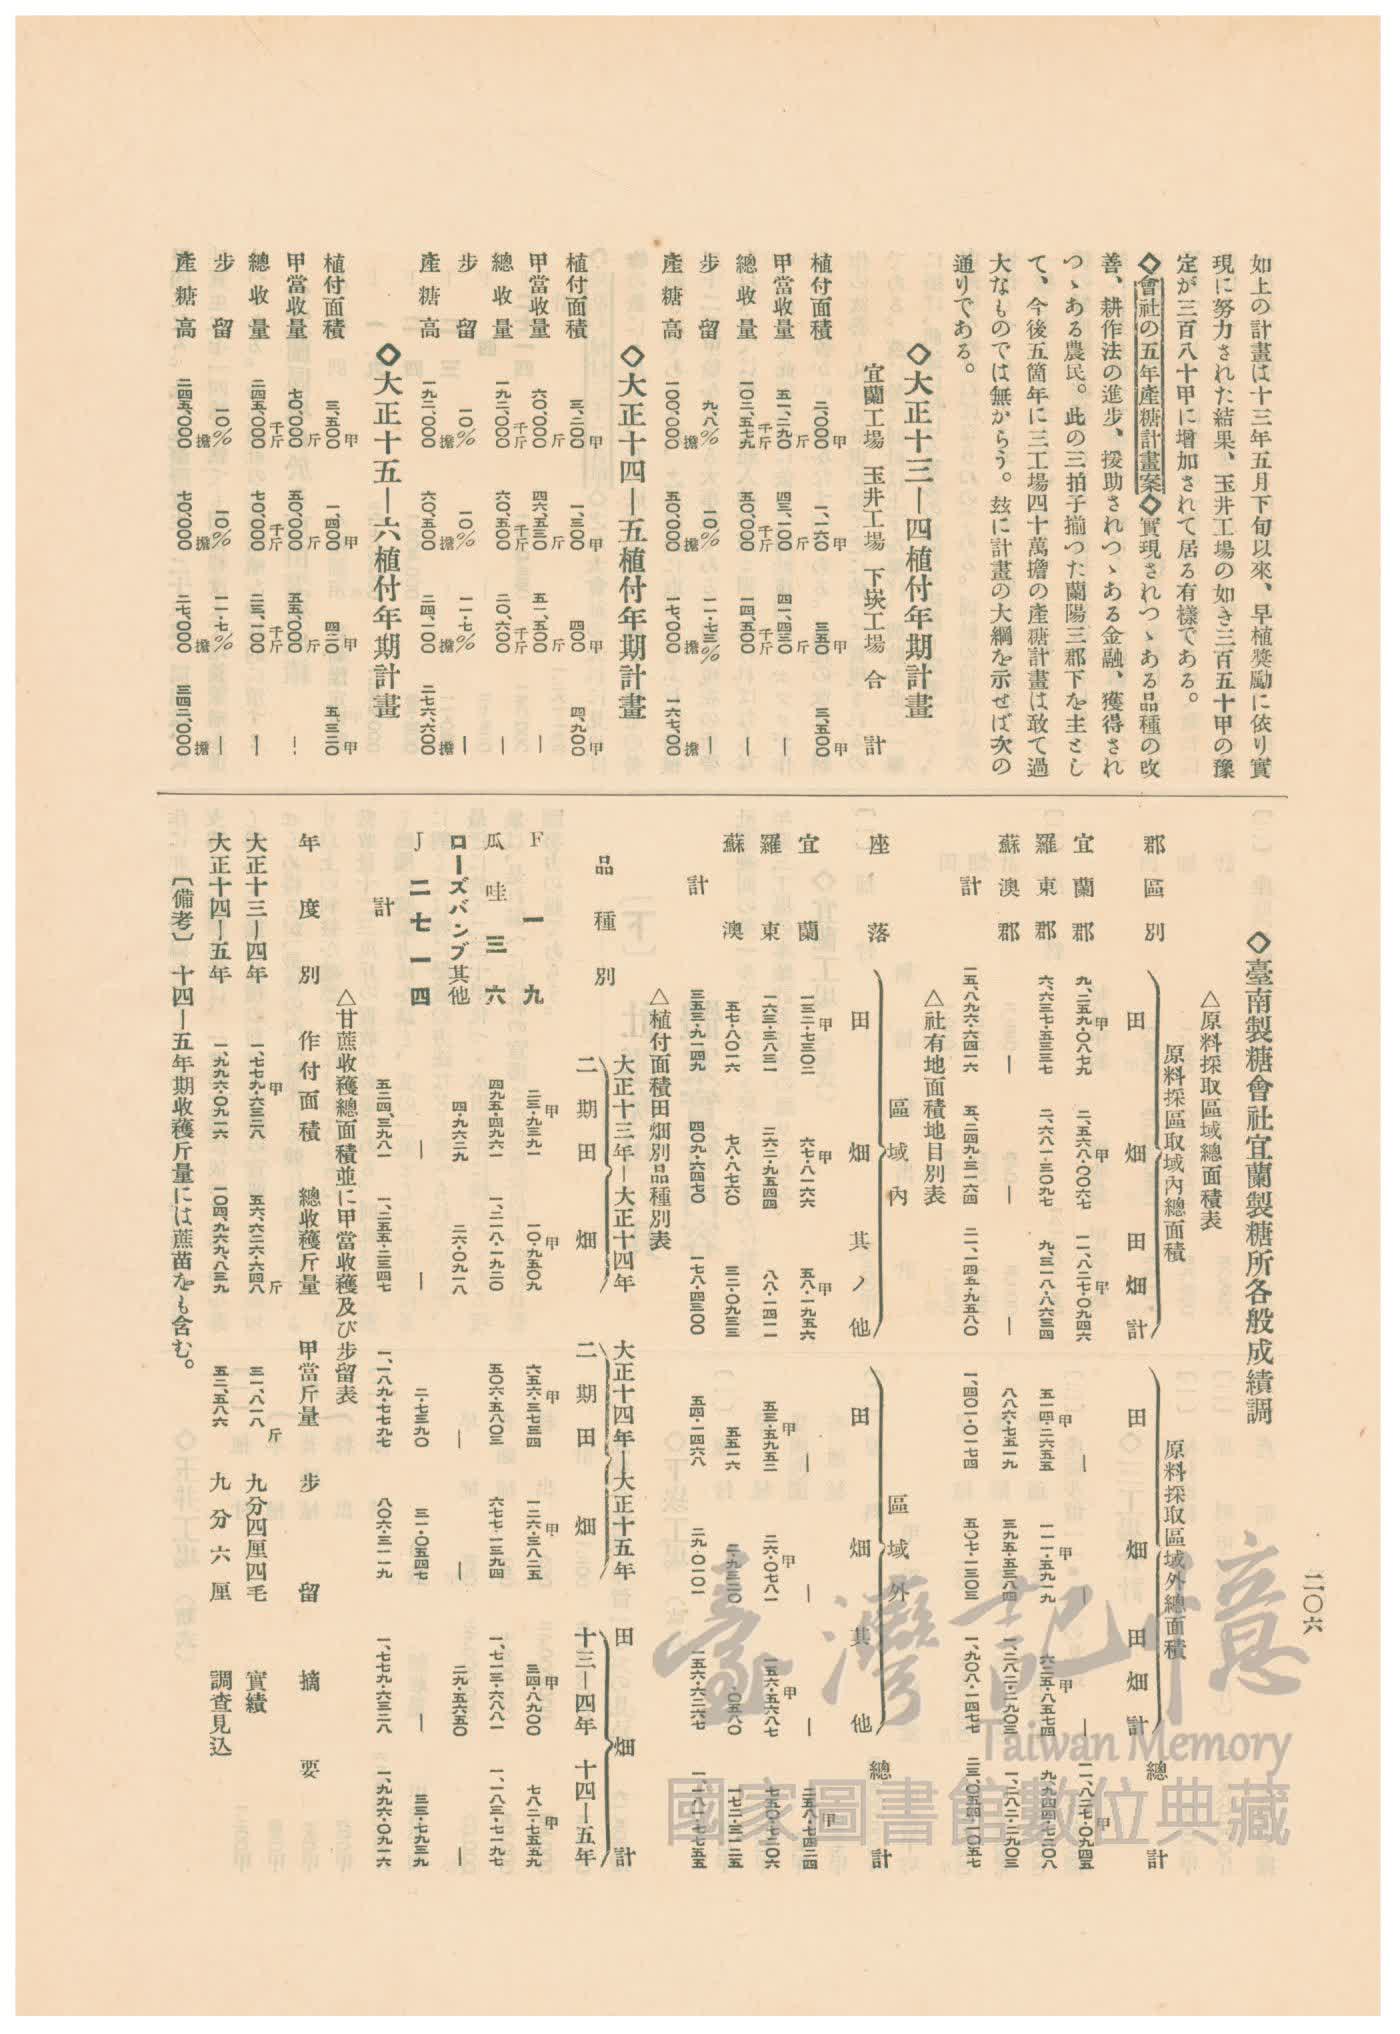 二〇六
如上の計畫は十三年五月下旬以來、早植奬勵に依り實
現に努力された結果、玉井工場の如き三百五十甲の豫
定が三百八十甲に增加されて居る有樣である。
◇會社の五年產糖計畫案◇實現されつゝある品種の改
善、耕作法の進步、援助されつゝある金融、獲得され
つゝある農民。此の三拍子揃つた蘭陽三郡下を主とし
て、今後五箇年に三工場四十萬擔の產糖計畫は敢て過
大なものでは無からう。玆に計畫の大綱を示せば次の
通りである。
◇大正十三—四植付年期計畫
宜蘭工場 玉井工場 下崁工場 合計
植付面積 二、〇〇〇甲 一、一六〇甲 三五〇甲 三、五〇〇甲
甲當收量 五一、二九〇斤 四三、一〇〇斤 四一、四三〇斤 —
總收量 一〇二、五七九千斤 五〇、〇〇〇千斤 一四、五〇〇千斤 —
步留 九、八% 一〇% 一一・七三% —
產糖高 一〇〇、〇〇〇擔 五〇、〇〇〇擔 一七、〇〇〇擔 一六七、〇〇〇
◇大正十四—五植付年期計畫
植付面積 三、二〇〇甲 一、三〇〇甲 四〇〇甲 四、九〇〇甲
甲當收量 六〇、〇〇〇斤 四六、五三〇斤 五一、五〇〇斤 —
總收量 一九二、〇〇〇千斤 六〇、五〇〇千斤 二〇、六〇〇千斤 —
步留 一〇% 一〇% 一一・七% —
產糖高 一九二、〇〇〇擔 六〇、五〇〇擔 二四、一〇〇擔 二七六、六〇〇擔
◇大正十五—六植付年期計畫
植付面積 三、五〇〇甲 一、四〇〇甲 四二〇甲 五、三二〇甲
甲當收量 七〇、〇〇〇斤 五〇、〇〇〇斤 五五、〇〇〇斤 —
總收量 二四五、〇〇〇千斤 七〇、〇〇〇千斤 二三、一〇〇千斤 —
步留 一〇% 一〇% 一一・七% —
產糖高 二四五、〇〇〇擔 七〇、〇〇〇擔 二七、〇〇〇擔 三四二、〇〇〇擔
◇臺南製糖會社宜蘭製糖所各般成績調
△原料採取區域總面積表
原料採區取域內總面積 原料採取區域外總面積
郡區別 田 畑 田畑計 田 畑 田畑計 總計
宜蘭郡 九、二五九・〇八七九甲 二、五六八・〇〇六七甲 一一、八二七・〇九四六甲 — — — 一一、八二七・〇九四五甲
羅東郡 六、六三七・五三三七 二、六八一・三〇九七 九、三一八・八六三四 五一四・二六五五甲 一一一・五九一九甲 六二五・八五七四甲 九、九四四・七二〇八
蘇澳郡 — — — 八八六・七五一九 三九五・五三八四 一、二八二・二九〇三 一、二八二・二九〇三
計 一五、八九六・六四一六 五、二四九・三一六四 二一、一四五・九五八〇 一、四〇一・〇一七四 五〇七・一三〇三 一、九〇八・一四七七 二三、〇五四・一〇五七
△社有地面積地目別表
區域內 區域外
座落 田 畑 其ノ他 田 畑 其他 總計
宜蘭 一三二・七三〇二甲 六七・八一六六甲 五八・一九五六甲 — — — 二五八・七四二四甲
羅東 一六三・三八三一 二六二・九五四四 八八・一四一一 五三・五九五二甲 二六・〇七八一甲 一五六・五六八七甲 七五〇・七二〇六
蘇澳 五七・八〇一六 七八・八七六〇 三二・〇九三三 五五一六 二・九三二〇 ・〇五八〇 一七二・三一二五
計 三五三・九一四九 四〇九・六四七〇 一七八・四三〇〇 五四・一四六八 二九・〇一〇一 一五六・六二六七 一、一八一・七七五五
△植付面積田畑別品種別表
大正十三年—大正十四年 大正十四年—大正十五年 田畑計
品種別 二期田 畑 二期田 畑 十三—四年 十四—五年
F一九 二三・九三九一甲 一〇・九五〇九甲 六五六・三七三四甲 一二六・三八二五甲 三四・八九〇〇甲 七八二・七五五九甲
瓜哇三六 四九五・四九六一 一、二一八・一九二〇 五〇六・五八〇三 六七七・一三九四 一、七一三・六八八一 一、一八三・七一九七
ローズバンブ其他 四・九六二九 二六・〇九一八 — — 二九・五六五〇 —
J二七一四 — — 二・七三九〇 三一・〇五四七 — 三三・七九三九
計 五二四、三九八一 一、二五五・二三四七 一、一八九・七七九七 八〇六・三一一九 一、七七九・六三二八 一、九九六・〇九一六
△甘蔗收穫總面積並に甲當收穫及び步留表
年度別 作付面積 總收穫斤量 甲當斤量 步留 摘要
大正十三—四年 一、七七九・六三二八甲 五六、六二六・六四八斤 三一、八一八斤 九分四厘四毛 實績
大正十四—五年 一、九九六・〇九一六 一〇四、九六九、八三九 五二、五八六 九分六厘 調查見込
〔備考〕十四—五年期收穫斤量には蔗苗をも含む。
臺灣記憶
Taiwan Memory
國家圖書館數位典藏